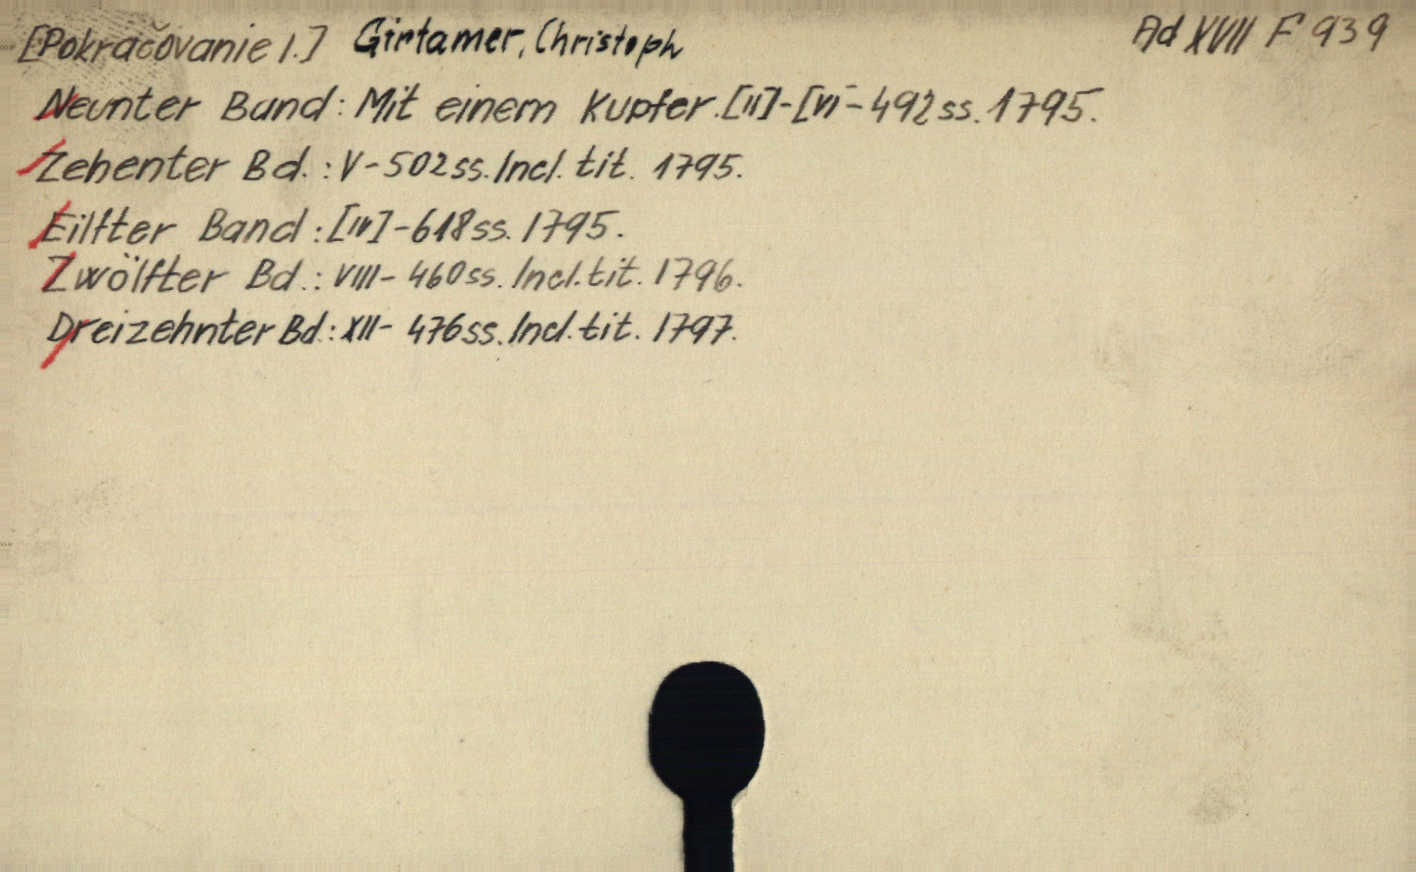 [Pokračovanie 1.] Girtamer, Christoph Ad XVII F 939
Neunter Band: Mit einem Kupfer. [II]-[VI-492 ss. 1795.
Zehenter Bd.: V-502 ss. Incl. tit. 1795.
Eilfter Band: [IV]-618 ss. 1795.
Zwölfter Bd.: VIII-460 ss. Incl. tit. 1796.
Dreizehnter Bd.: XII-476 ss. Incl. tit. 1797.